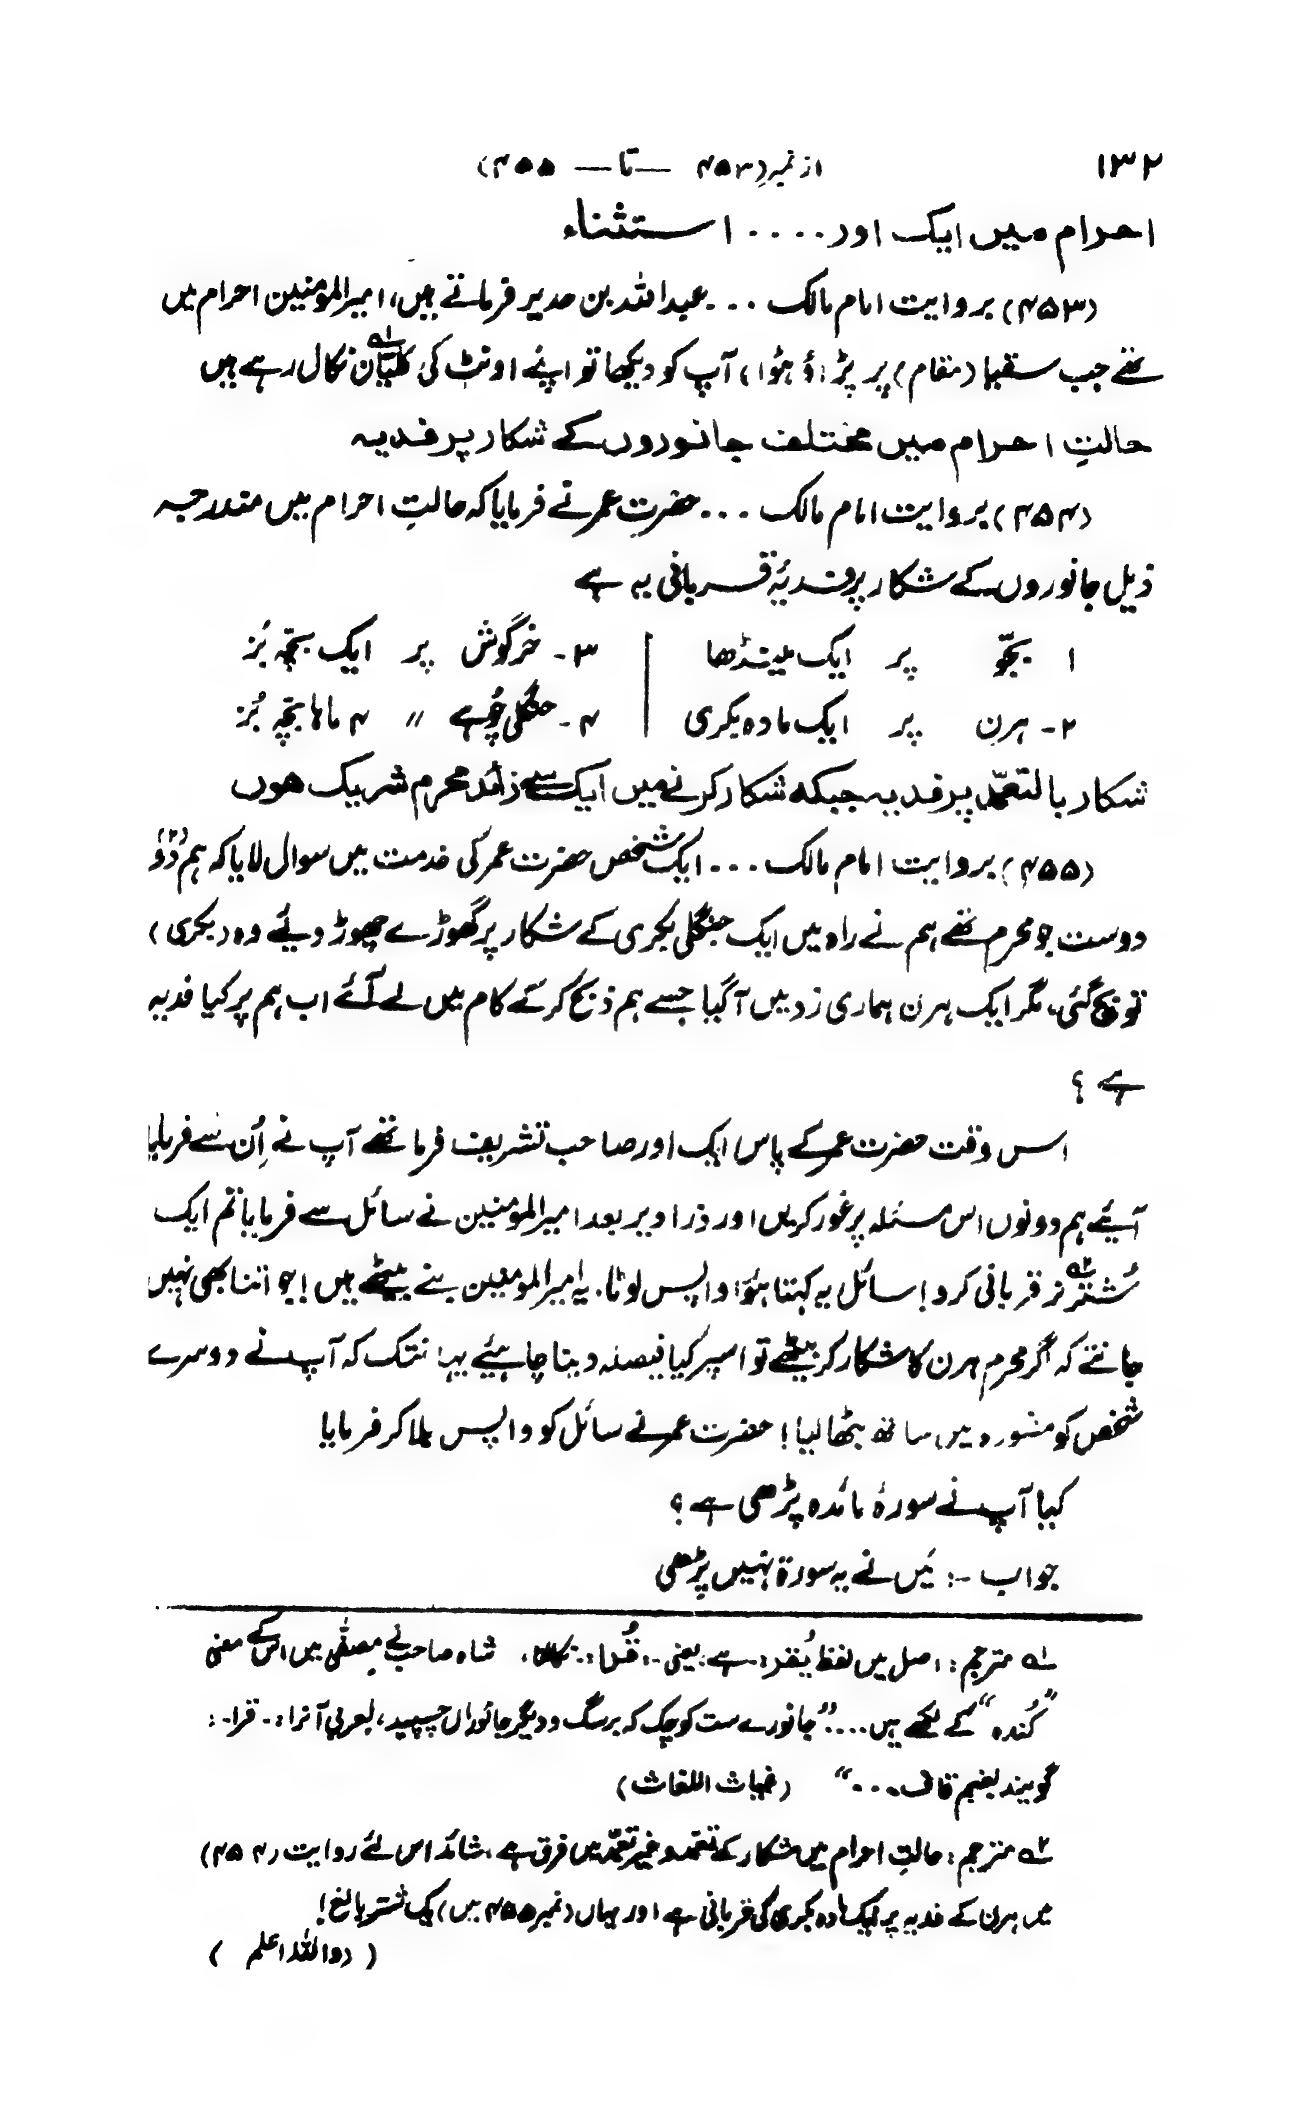 ۱۳۲ از نمبر (۴۵۳ — تا — ۴۵۵)
احرام میں ایک اور .... استثناء
(۴۵۳) بروایت امام مالک ... عبداللہ بن ہدیر فرماتے ہیں، امیرالمؤمنین احرام میں
تھے جب سقیا (مقام) پر پڑاؤ ہؤا، آپ کو دیکھا تو اپنے اونٹ کی کلّیاں۱ نکال رہے ہیں
حالتِ احرام میں مختلف جانوروں کے شکار پر فدیہ
(۴۵۴) بروایت امام مالک ... حضرت عمر نے فرمایا کہ حالتِ احرام میں مندرجہ
ذیل جانوروں کے شکار پر فدیۂ قربانی یہ ہے
۱ بجّو پر ایک مینڈھا | ۳- خرگوش پر ایک بچّہ بُز
۲- ہرن پر ایک مادہ بکری | ۴- جنگلی چُوہے 〃 ۴ ماہا بچّہ بُز
شکار بالتعمّد پر فدیہ جبکہ شکار کرنے میں ایک سے زائد محرم شریک ہوں
(۴۵۵) بروایت امام مالک ... ایک شخص حضرت عمر کی خدمت میں سوال لایا کہ ہم دُو (۲)
دوست جو محرم تھے ہم نے راہ میں ایک جنگلی بکری کے شکار پر گھوڑے چھوڑ دیئے وہ (بکری)
تو بچ گئی، مگر ایک ہرن ہماری زد میں آگیا جسے ہم ذبح کر کے کام میں لے آئے اب ہم پر کیا فدیہ
ہے ؟
اس وقت حضرت عمر کے پاس ایک اور صاحب تشریف فرما تھے آپ نے اُن سے فرمایا
آیئے ہم دونوں اس مسئلہ پر غور کریں اور ذرا دیر بعد امیرالمؤمنین نے سائل سے فرمایا تم ایک
شُتر۲ نر قربانی کرو! سائل یہ کہتا ہؤا واپس لوٹا. یہ امیرالمومنین بنے بیٹھے ہیں! جو اتنا بھی نہیں
جانتے کہ اگر محرم ہرن کا شکار کر بیٹھے تو اسپر کیا فیصلہ دینا چاہیئے یہا نتک کہ آپ نے دوسرے
شخص کو مشورہ میں ساتھ بٹھا لیا! حضرت عمر نے سائل کو واپس بلا کر فرمایا
کیا آپ نے سورۂ مائدہ پڑھی ہے ؟
جواب :- مَیں نے یہ سورۃ نہیں پڑھی
۱ مترجم: اصل میں لفظ یُقرد:- ہے یعنی:- قُراد:- نکالنا، شاہ صاحب نے مصفّٰی میں اس کے معنی
"کُندہ" کے لکھے ہیں ... "جانورے ست کوچک کہ بر سگ و دیگر جانوراں چسپید، بعربی آنرا:- قراد:
گویند بضم قاف ..." (غیاث اللغات)
۲ مترجم: حالتِ احرام میں شکار کے تعمّد و غیر تعمّد میں فرق ہے، شائد اس لئے روایت (۴۵۴)
میں ہرن کے فدیہ پر ایک مادہ بکری کی قربانی ہے اور یہاں (نمبر ۴۵۵ میں) یک شتر بالغ!
(واللہ اعلم)